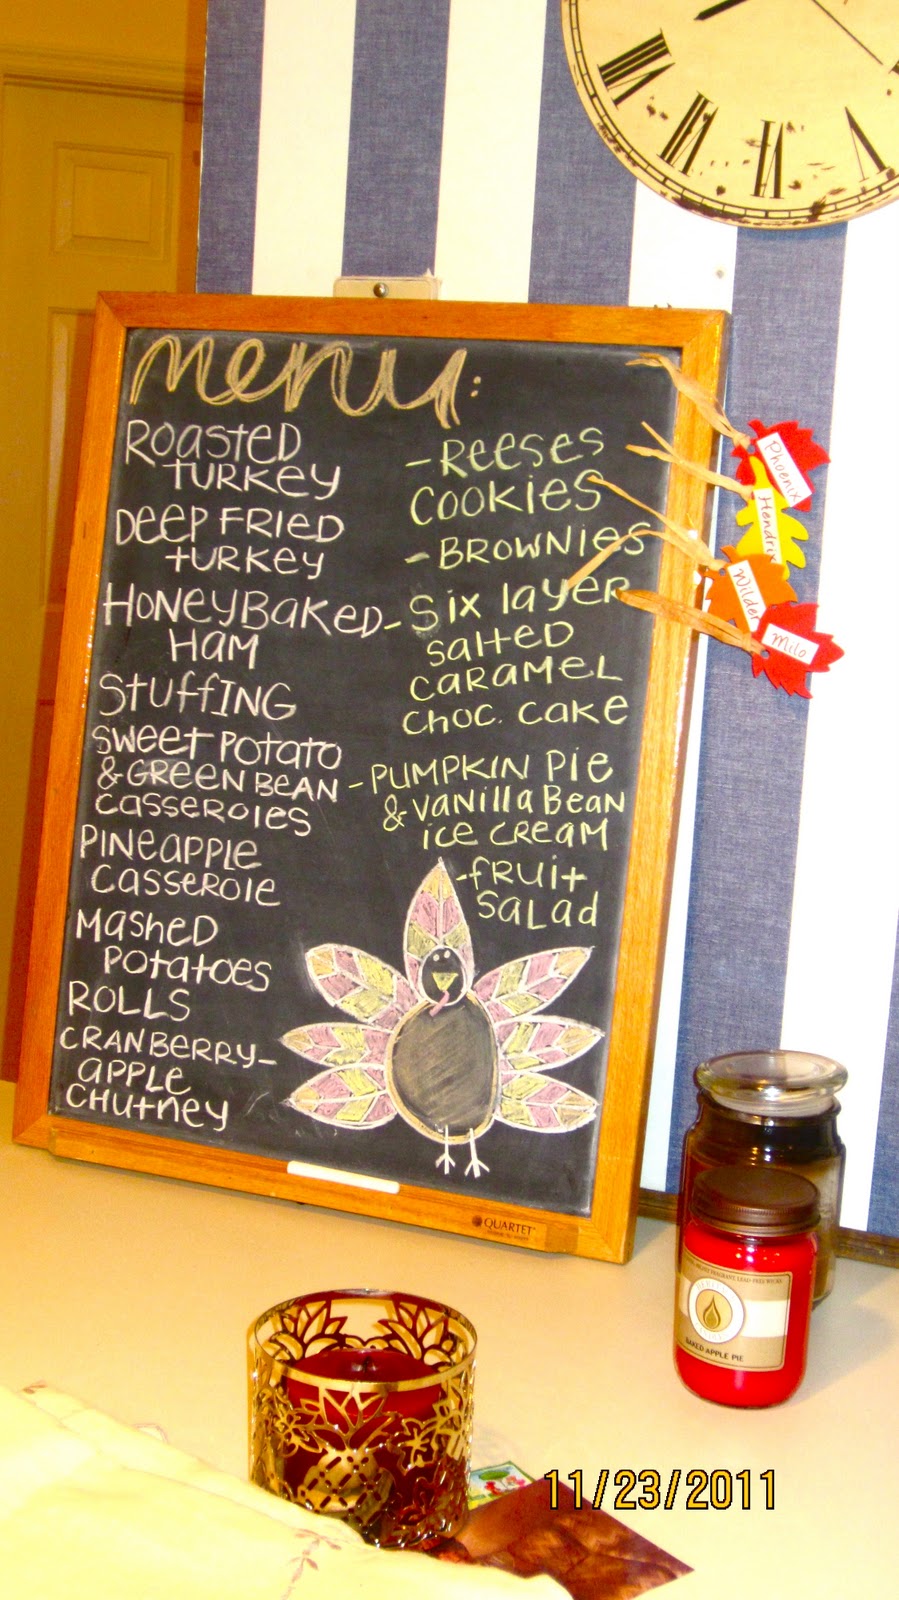 menu:
ROASTED
TURKEY
DEEP FRIED
turkey
HONEYBAKED
HAM
STUFFING
SWEET POTATO
& GREEN BEAN
CASSEROLES
PINEAPPLE
CASSEROLE
MASHED
POTATOES
ROLLS
CRANBERRY-
APPLE
CHUTNEY
- REESES
COOKIES
- BROWNIES
- Six layer
salted
caramel
choc. cake
- PUMPKIN PIE
& VANILLA BEAN
ICE CREAM
- FRUIT
SALAD
Phoenix
Hendrix
Wilder
Milo
QUARTET
BAKED APPLE PIE
11/23/2011